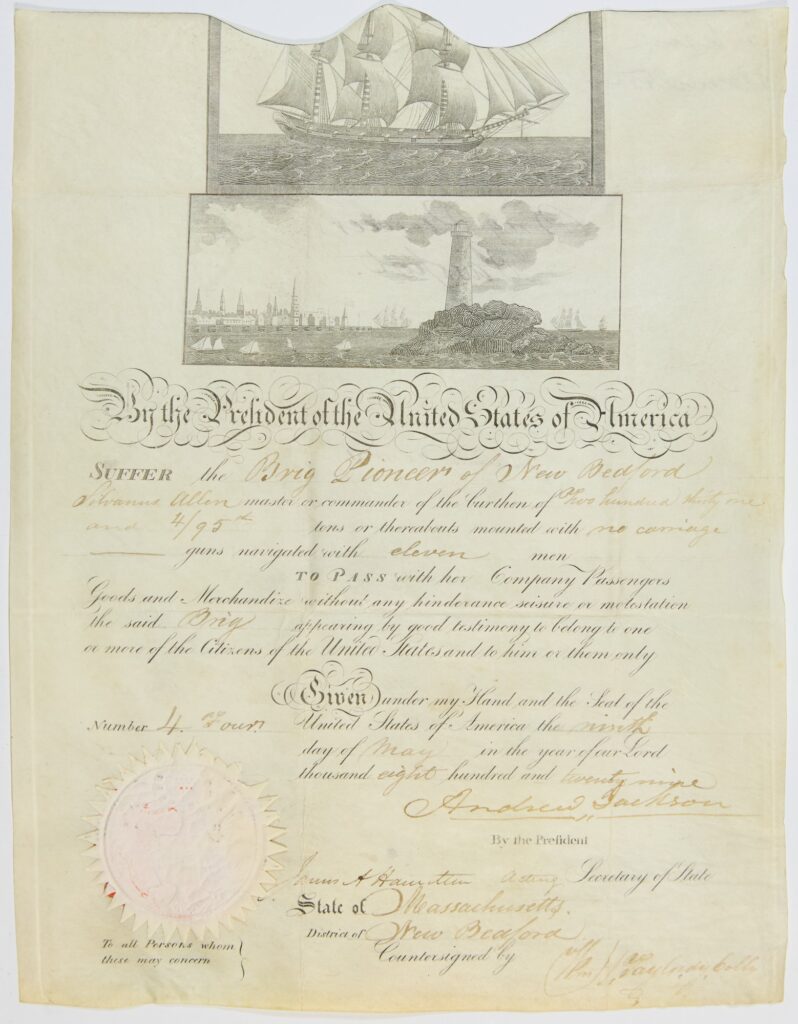 By the President of the United States of America
SUFFER the Brig Pioneer of New Bedford
Silvanus Allen master or commander of the burthen of Two hundred thirty one
and 4/95th tons or thereabouts mounted with no carriage
guns navigated with eleven men
TO PASS with her Company Passengers
Goods and Merchandize without any hinderance seisure or molestation
the said Brig appearing by good testimony to belong to one
or more of the Citizens of the United States and to him or them only
Given under my Hand and the Seal of the
Number 4. Four. United States of America the ninth
day of May in the year of our Lord
thousand eight hundred and twenty nine
Andrew Jackson
By the President
James A Hamilton Acting Secretary of State
State of Massachusetts.
District of New Bedford
To all Persons whom
these may concern
Countersigned by